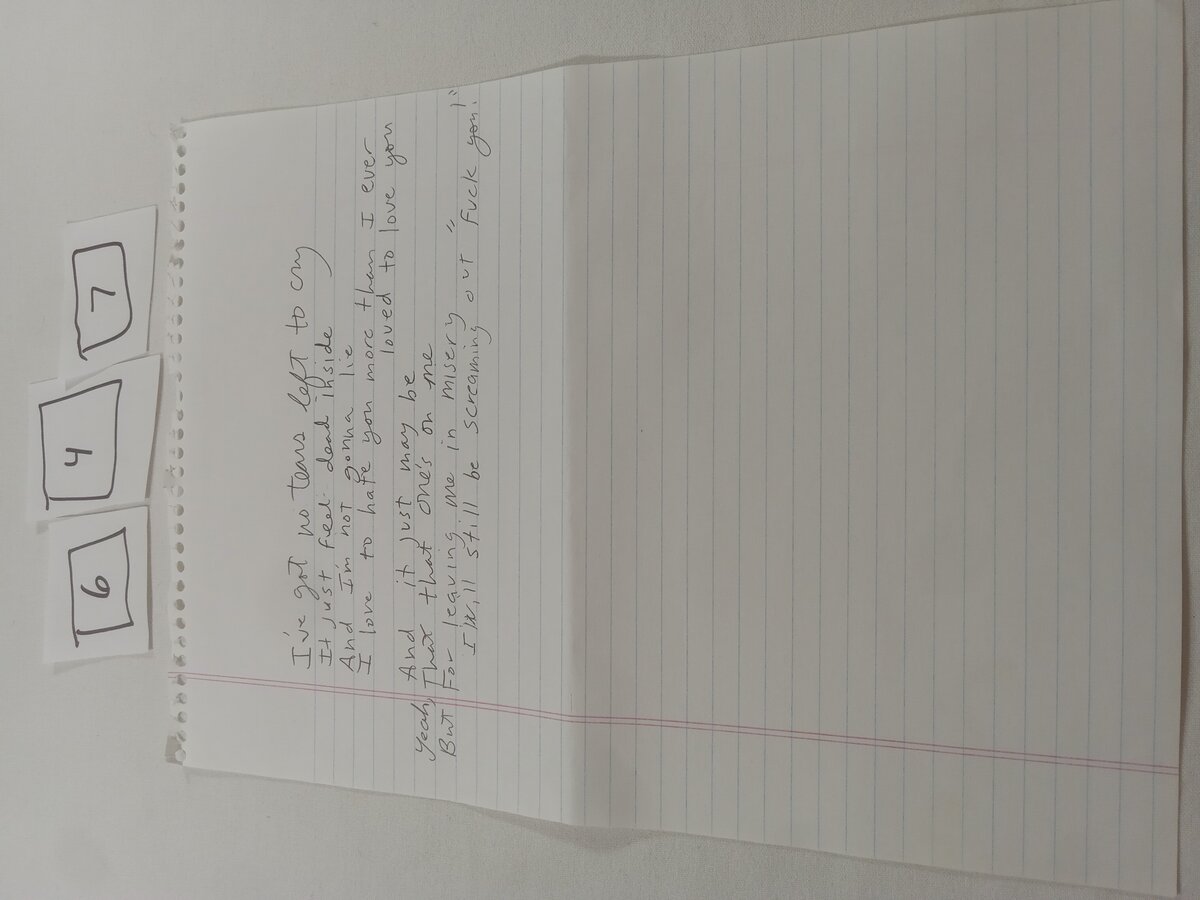 6 4 7
I've got no tears left to cry
It just feel dead inside
And I'm not gonna lie
I love to hate you more than I ever
loved to love you
Yeah, And it just may be
That that one's on me
But For leaving me in misery
I will still be screaming out "Fuck you!"